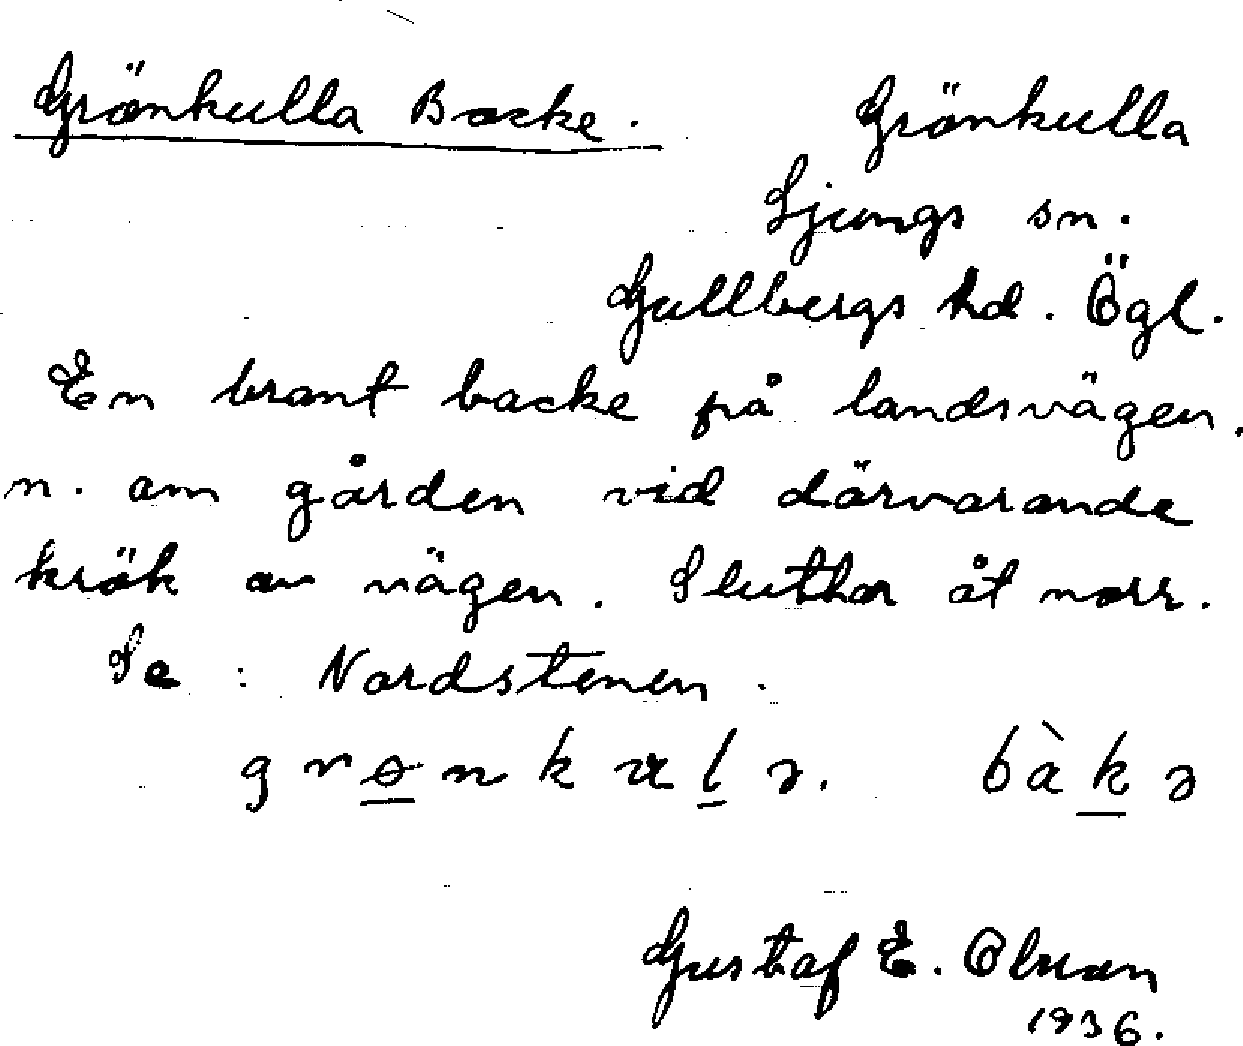 Grönkulla Backe. Grönkulla
Ljungs sn.
Gullbergs hd. Ögl.
En brant backe på landsvägen,
n. om gården vid därvarande
krök av vägen. Sluttar åt norr.
Se : Nordstenen.
grɵnkulə. bàkə
Gustaf E. Olsson
1936.